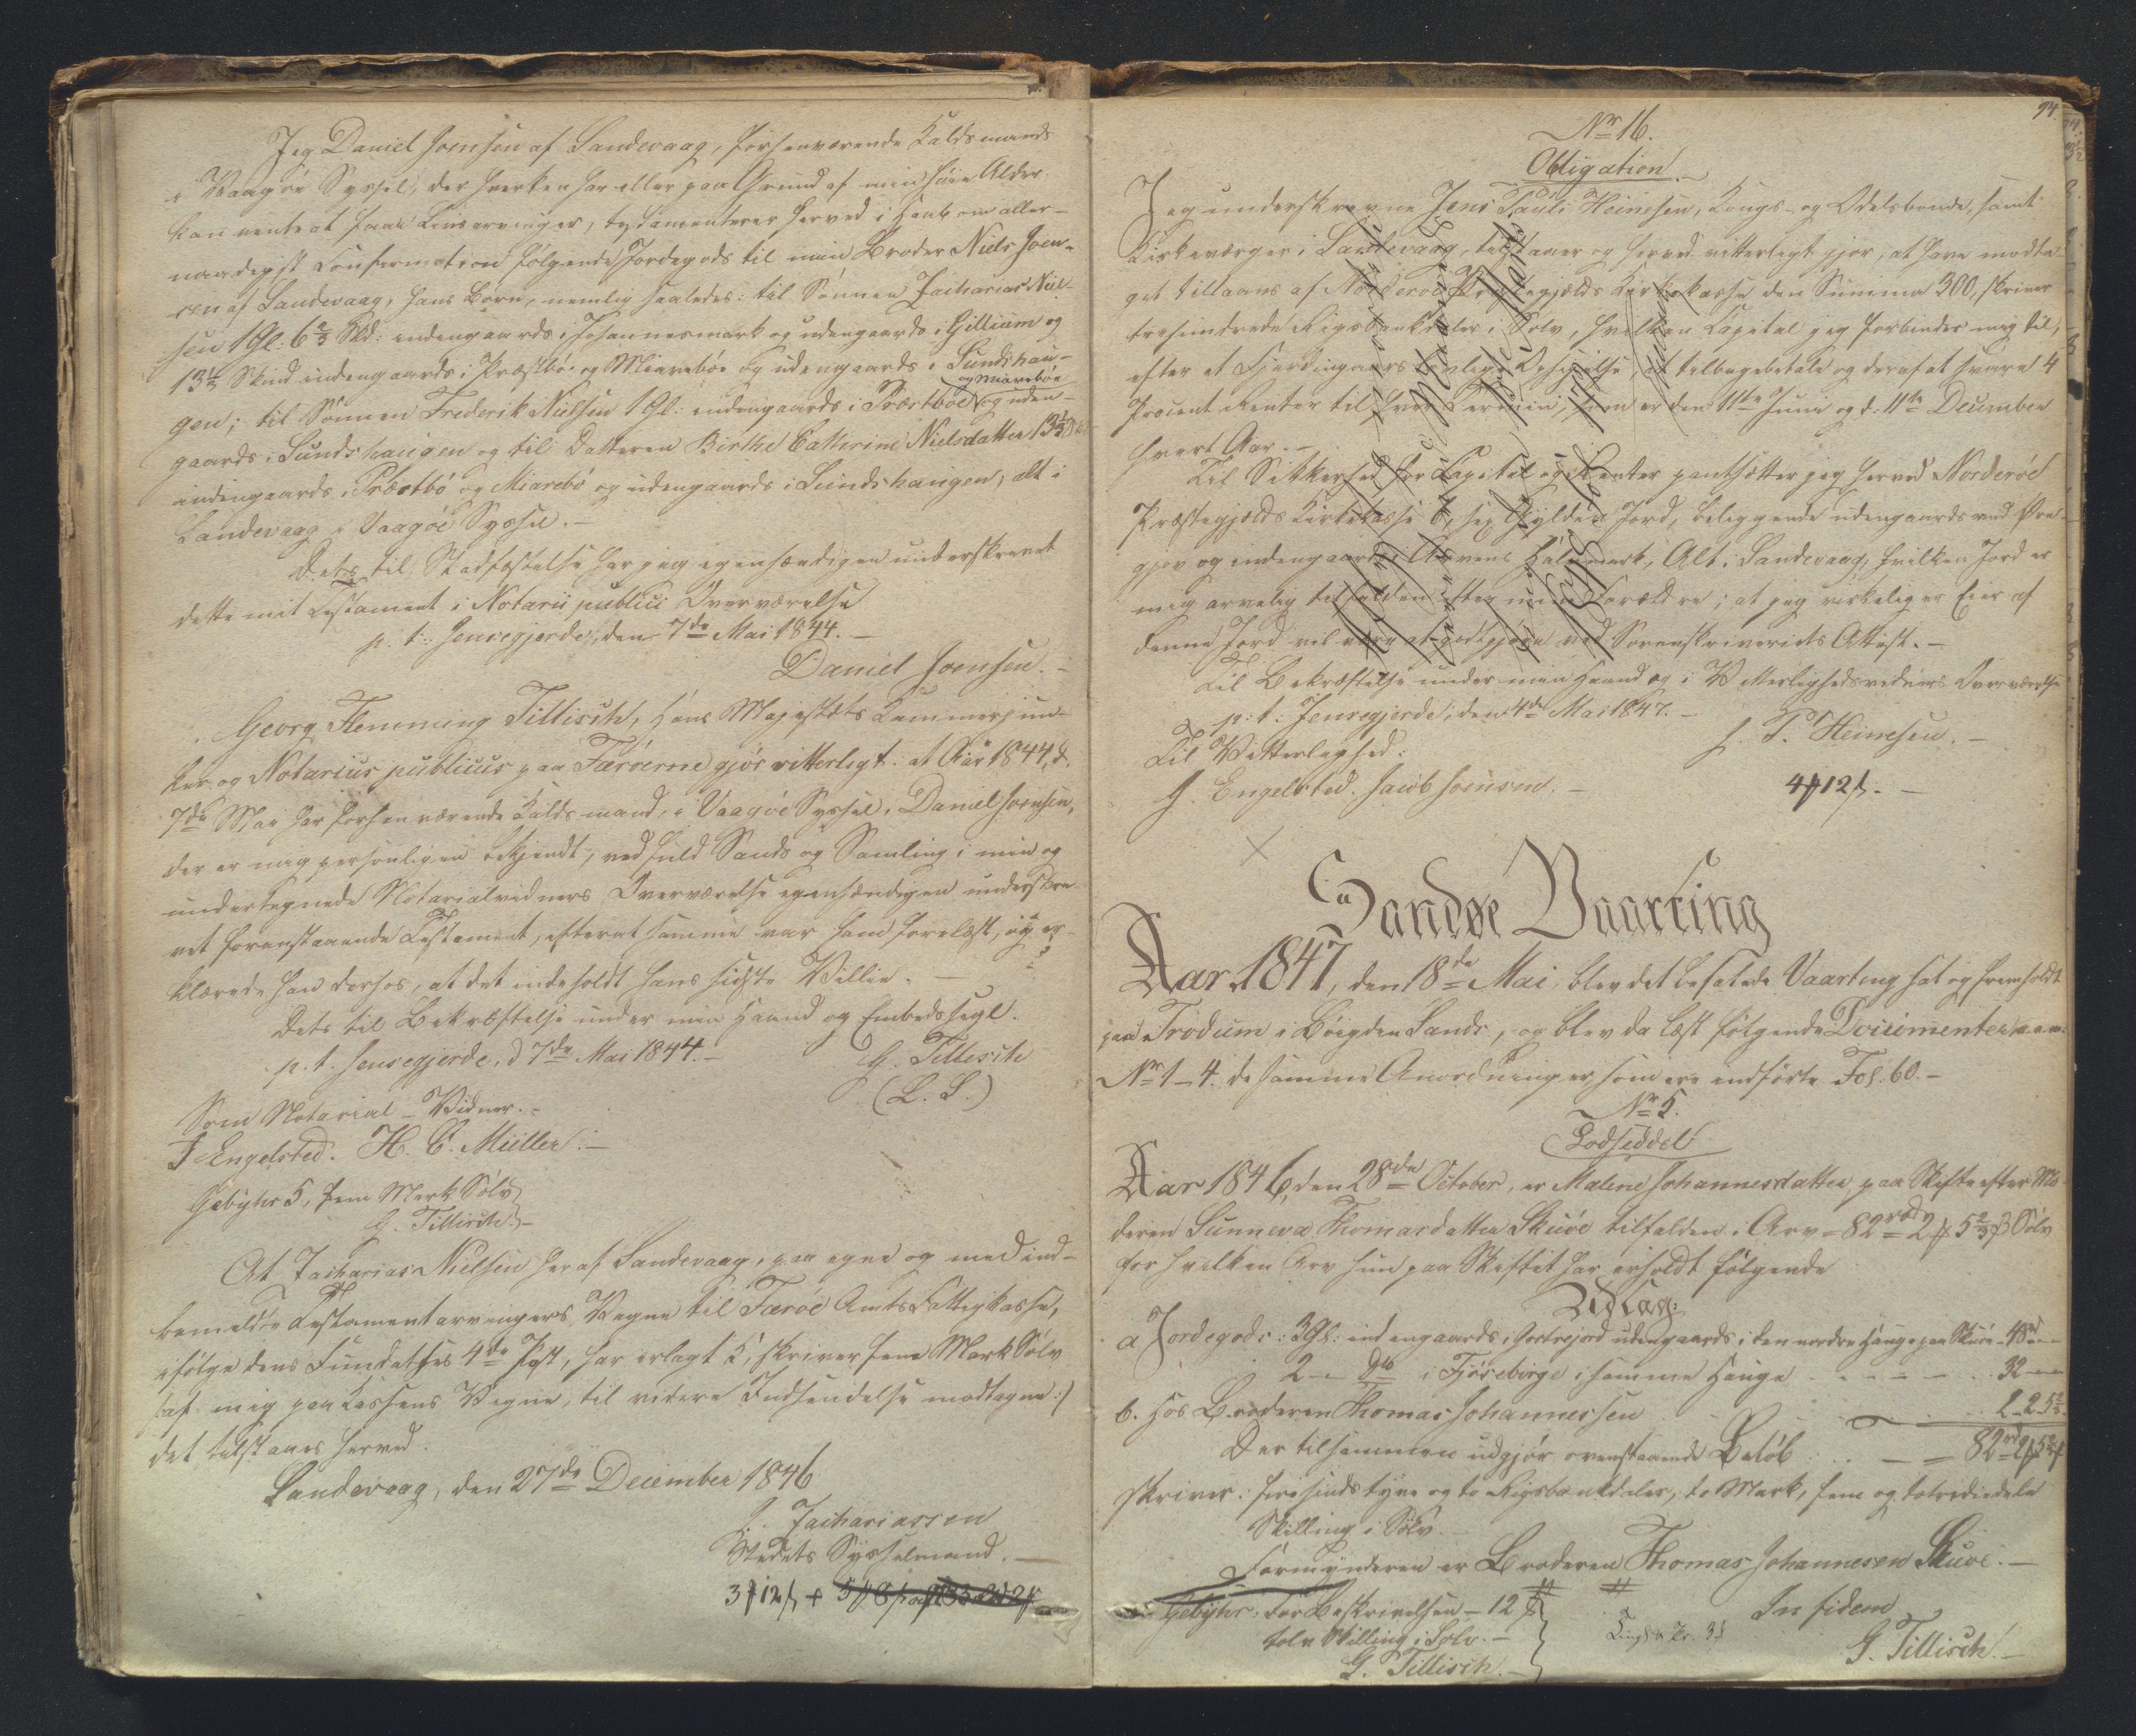 Jeg Daniel Joensen af Sandevaag, forhenværende Kaldsmand
i Vaagöe Syssel, der hverken har eller paa Grund af min høie Alder
kan vente at faae Livsarvinger, testamenterer herved i Haab om aller-
naadigst Confirmation følgende Jordegods til min Broder Niels Joen-
sen af Sandevaag, hans Børn, nemlig saaledes: til Sønnen Zacharias Niel-
sen 1 Gl. 6 2/3 Skd: indengaards i Johannesmark og udengaards i Gillium og
13 1/3 Skind indengaards i Præstbö og Miareböe og udengaards i Sundshau-
gen; til Sønnen Frederik Nielsen 1 Gl: indengaards i Præstböe og Miareböe og uden-
gaards i Sundshaugen og til Datteren Birthe Cathrine Nielsdatter 13 1/3 Sk.
indengaards i Præstbö og Miarebö og udengaards i Sundshaugen, alt i
Sandevaag i Vaagöe Syssel.-
Dets til Stadfæstelse har jeg egenhændigen underskrevet
dette mit Testament i Notarii publici Overværelse
p. t. Jensegjerde, den 7de Mai 1844.-
Daniel Joensen.-
Georg Flemming Tillisch, Hans Majestæts Kammerjun-
ker og Notarius publicus paa Færöerne gjør vitterligt: at Aar 1844, d.
7de Mai har forhenværende Kaldsmand, i Vaagöe Syssel, Daniel Joensen,
der er mig personligen bekjendt, ved fuld Sands og Samling i min og
undertegnede Notarialvidners Overværelse egenhændigen underskre-
vet foranstaaende Testament, efterat samme var ham forelæst, og er-
klærede han derhos, at det indeholdt hans sidste Villie.-
Dets til Bekræftelse under min Haand og Embedssegl.
p. t. Jensegjerde, d 7de Mai 1844.-
G. Tillisch
(L. S.)
Som Notarial-Vidner.-
J Engelsted. H. C. Müller.-
Gebyhr 5, fem Mark Sölv
G. Tillisch.-
At Zacharias Nielsen her af Sandevaag, paa egne og med ind-
bemeldte Testamentarvingers Vegne til Færöe Amts Fattigkasse,
ifølge dens Fundatses 4de Post, har erlagt 5, skriver fem Mark Sölv
/: af mig paa Kassens Vegne, til videre Indsendelse modtagne :/
det tilstaaes herved.
Sandevaag, den 27de December 1846
J. Zachariassen
Stedets Sysselmand.-
3 12 +
94
No 16.
Obligation.-
Jeg underskrevne Jens Pauli Heinesen, Kongs- og Odelsbonde, samt
Kirkeværger i Sandevaag, tilstaaer og herved vitterligt gjør, at have modta-
get tillaans af Norderöe Præstegjælds Kirkekasse den Summa 300, skriver
trehundrede Rigsbankdaler i Sölv, hvilken Kapital jeg forbinder mig til,
efter et Fjerdingaars lovlige Opsigelse, at tilbagebetale og deraf at svare 4
Procent Renter til hver Termin, som er den 11te Juni og d. 11te December
hvert Aar.-
Til Sikkerhed for Capital og Renter pantsætter jeg herved Norderöe
Præstegjælds Kirkekasse 6, sex Gylden Jord, beliggende udengaards ved
og indengaards, Alt i Sandevaag, hvilken Jord er
mig arvelig tilfalden efter mine Forældre; at jeg virkelig er Eier af
denne Jord vil være at godtgjøre ved Sorenskriveriets Attest.-
Til Bekræftelse under min Haand og i Vitterlighedsvidners Overværelse
p: t: Jensegjerde, den 4de Mai 1847.-
J. P. Heinesen.-
Til Vitterlighed:
J. Engelsted. Jacob Joensen.-
4 12.-
Sandøe Vaarting
Aar 1847, den 18de Mai, blev det befalede Vaarting sat og fremholdt
paa Trodum i Böigden Sands, og blev da læst følgende Documenter:
No 1-4. de samme Anordninger, som ere indførte Fol. 60.-
No 5.
Lodseddel
Aar 1846, den 28de October, er Malene Johannesdatter, paa Skifte efter Mo-
deren Sunneva Thomasdatter Skuöe tilfalden i Arv = 82 rbd 2 5 2/3 Sölv
for hvilken Arv hun paa Skiftet har erholdt følgende
Udlæg:
a Jordegods: 3 Gl: indengaards i udengaards i den nordre Hauge paa Skuöe - 48
2 - do i Fjöseborge i samme Hauge 32
b. Hos Broderen Thomas Johannessen 2 - 2 5 2/3
Der tilsammen udgjör ovenstaaende Belöb: - - 82 rbd 2 5 2/3
skriver: firesindstyve og to Rigsbankdaler, to Mark, fem og totrediedele
Skilling i Sölv.
Formynderen er Broderen Thomas Johannesen Skuöe.-
Gebyhr: For Beskrivelsen - 12
tolv Skilling i Sölv.-
G. Tillisch.-
In fidem
G. Tillisch.-